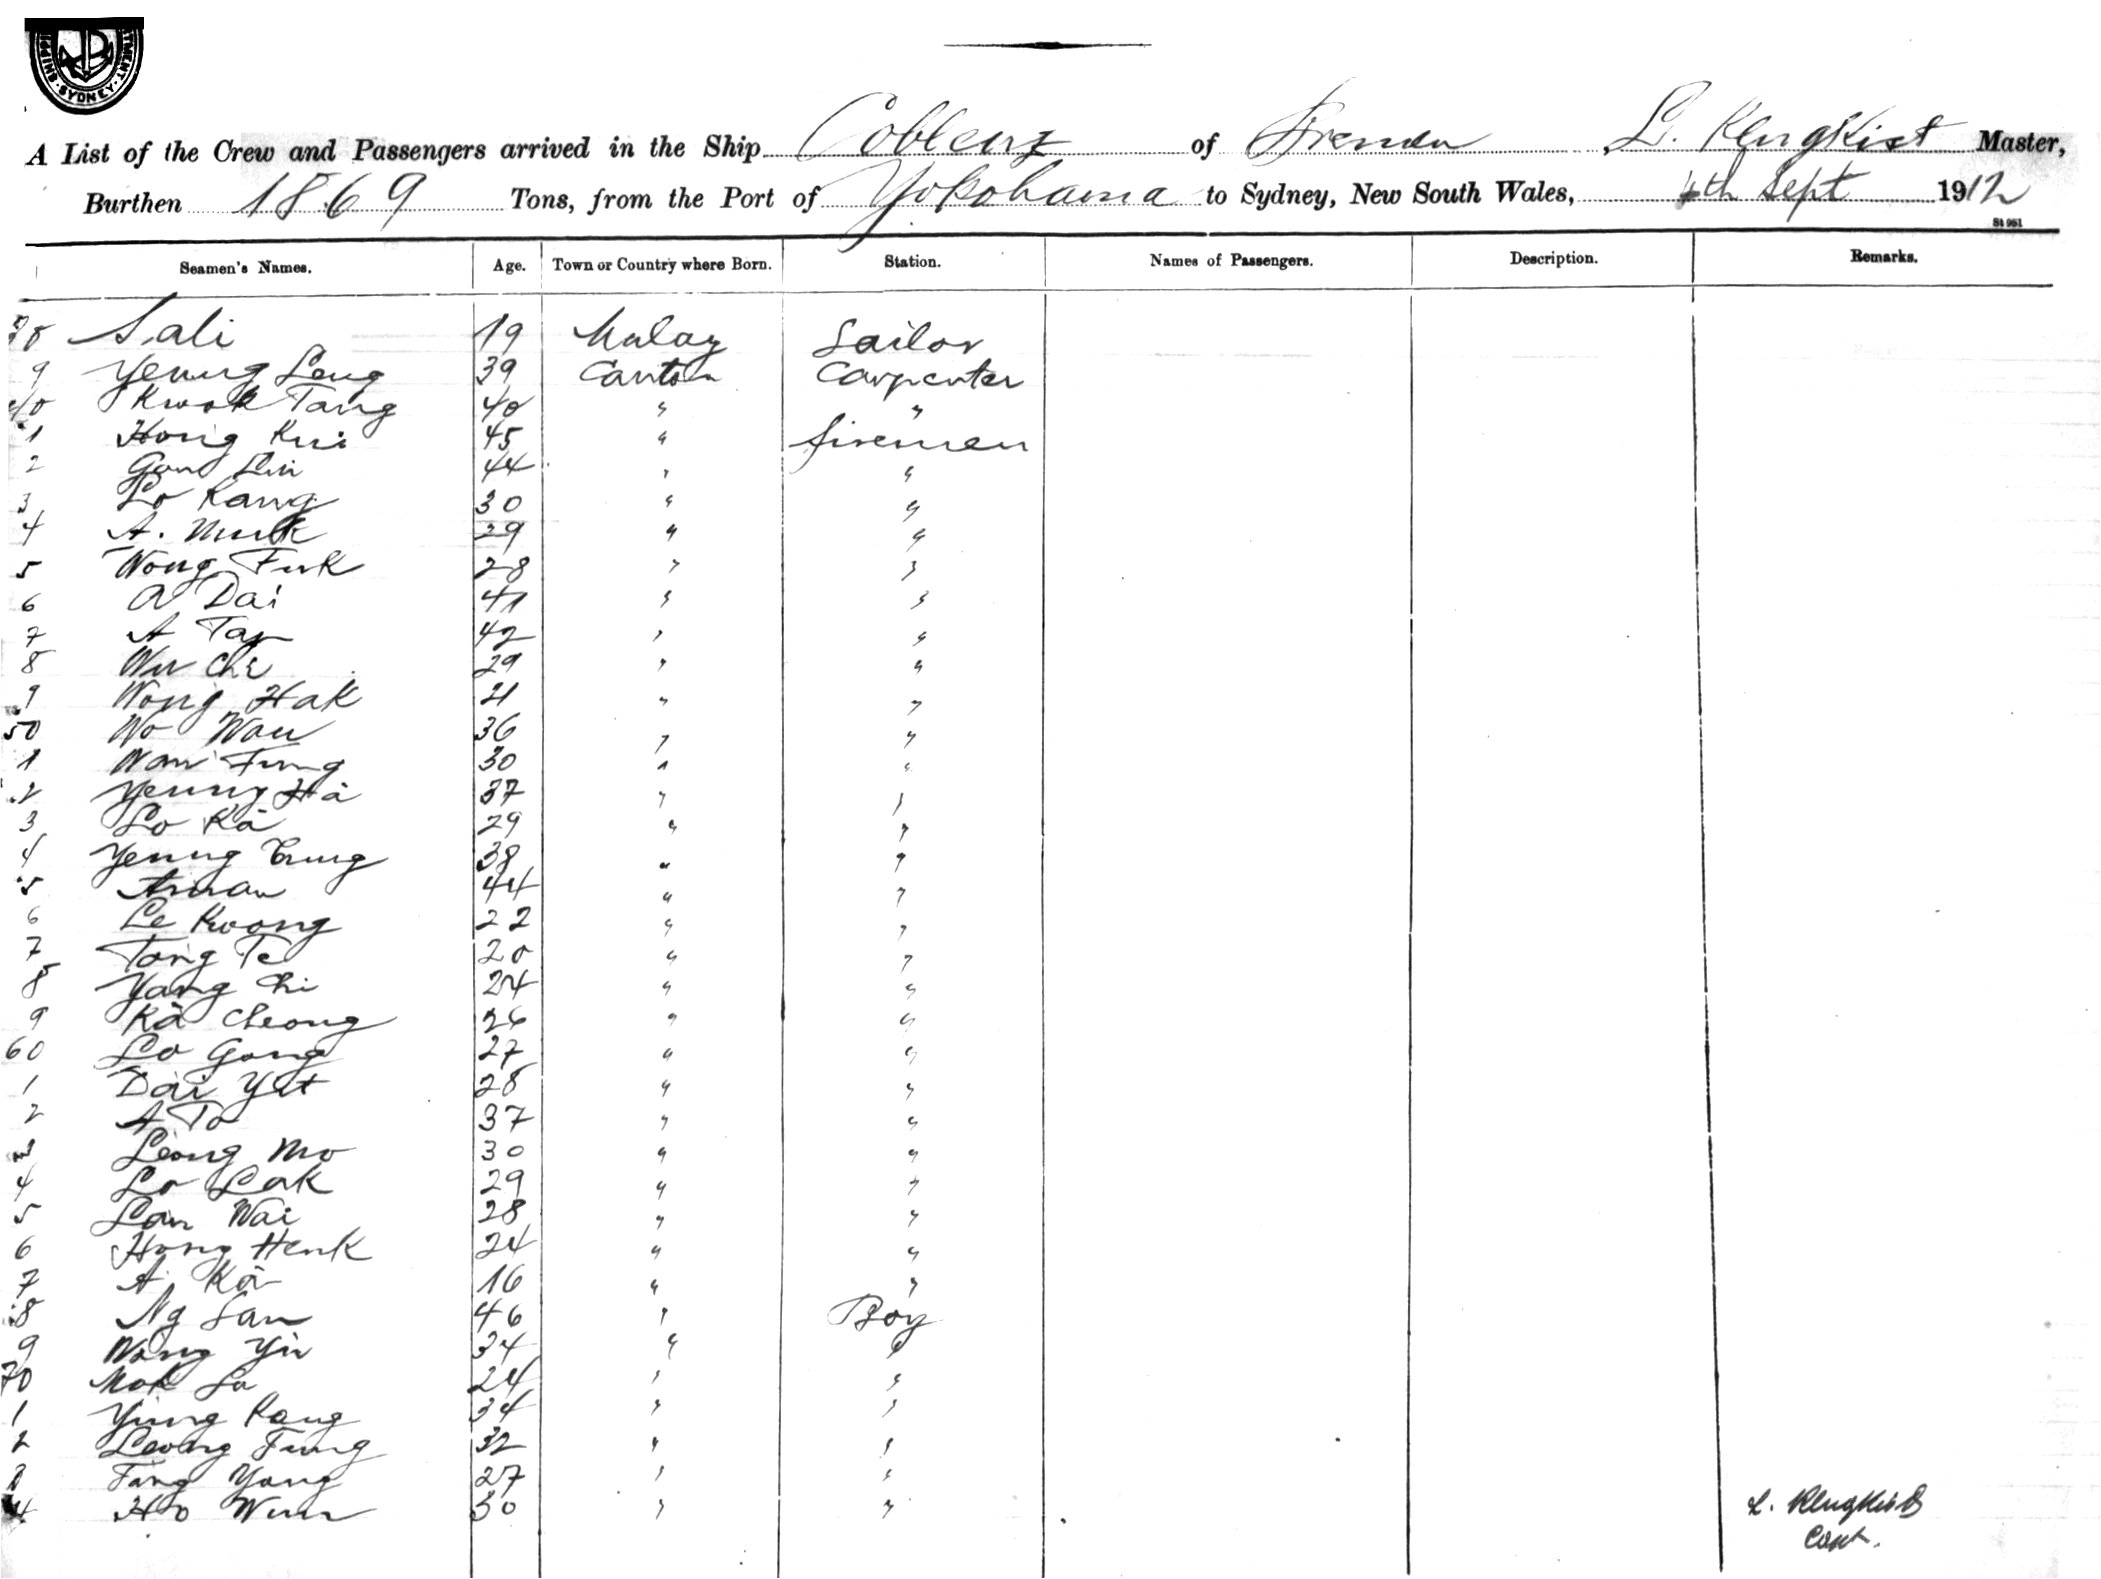 SHIPP TMENT · SYDNEY ·
A List of the Crew and Passengers arrived in the Ship Coblenz of Bremen L. Klugkist Master,
Burthen 1869 Tons, from the Port of Yokohama to Sydney, New South Wales, 4th Sept 1912
St 961
Seamen's Names. Age. Town or Country where Born. Station. Names of Passengers. Description. Remarks.
38 Sali 19 Malay Sailor
9 Yeung Long 39 Canton Carpenter
40 Kwok Tang 40 " "
1 Hong Kui 45 " firemen
2 Gan Lin 44 " "
3 Lo Kang 30 " "
4 A. Muk 29 " "
5 Wong Fuk 28 " "
6 A Dai 41 " "
7 A Tap 42 " "
8 Wu Che 29 " "
9 Wong Hak 21 " "
50 Wo Wau 36 " "
1 Wan Fung 30 " "
2 Yeung Hà 37 " "
3 Lo Kà 29 " "
4 Yeung Tung 38 " "
5 Aman 44 " "
6 Le Kwong 22 " "
7 Tong Te 20 " "
8 Yang Chi 24 " "
9 Kà Cheong 26 " "
60 Lo Gong 27 " "
1 Dai Yat 28 " "
2 A To 37 " "
3 Leong Mo 30 " "
4 Lo Lok 29 " "
5 Lan Wai 28 " "
6 Hong Henk 24 " "
7 A Kà 16 " "
8 Ng San 46 " Boy
9 Wong Yin 34 " "
70 Mok Su 24 " "
1 Yung Kang 34 " "
2 Leong Fung 32 " "
3 Fong Yong 27 " "
4 Ho Wun 30 " "
L. Klugkist
Capt.